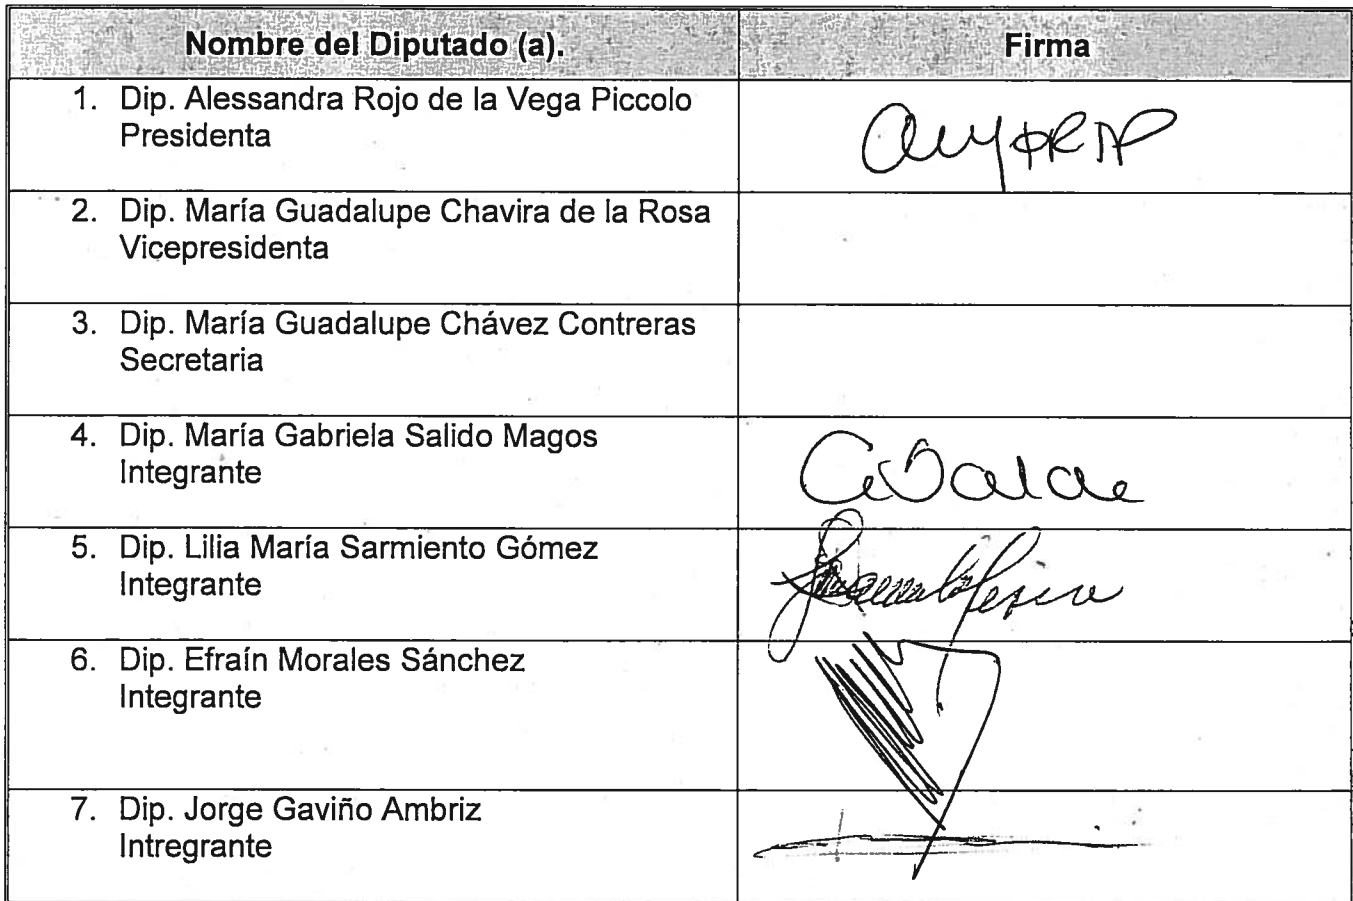 Nombre del Diputado (a).
Firma
1. Dip. Alessandra Rojo de la Vega Piccolo
Presidenta
2. Dip. María Guadalupe Chavira de la Rosa
Vicepresidenta
3. Dip. María Guadalupe Chávez Contreras
Secretaria
4. Dip. María Gabriela Salido Magos
Integrante
5. Dip. Lilia María Sarmiento Gómez
Integrante
6. Dip. Efraín Morales Sánchez
Integrante
7. Dip. Jorge Gaviño Ambriz
Intregrante